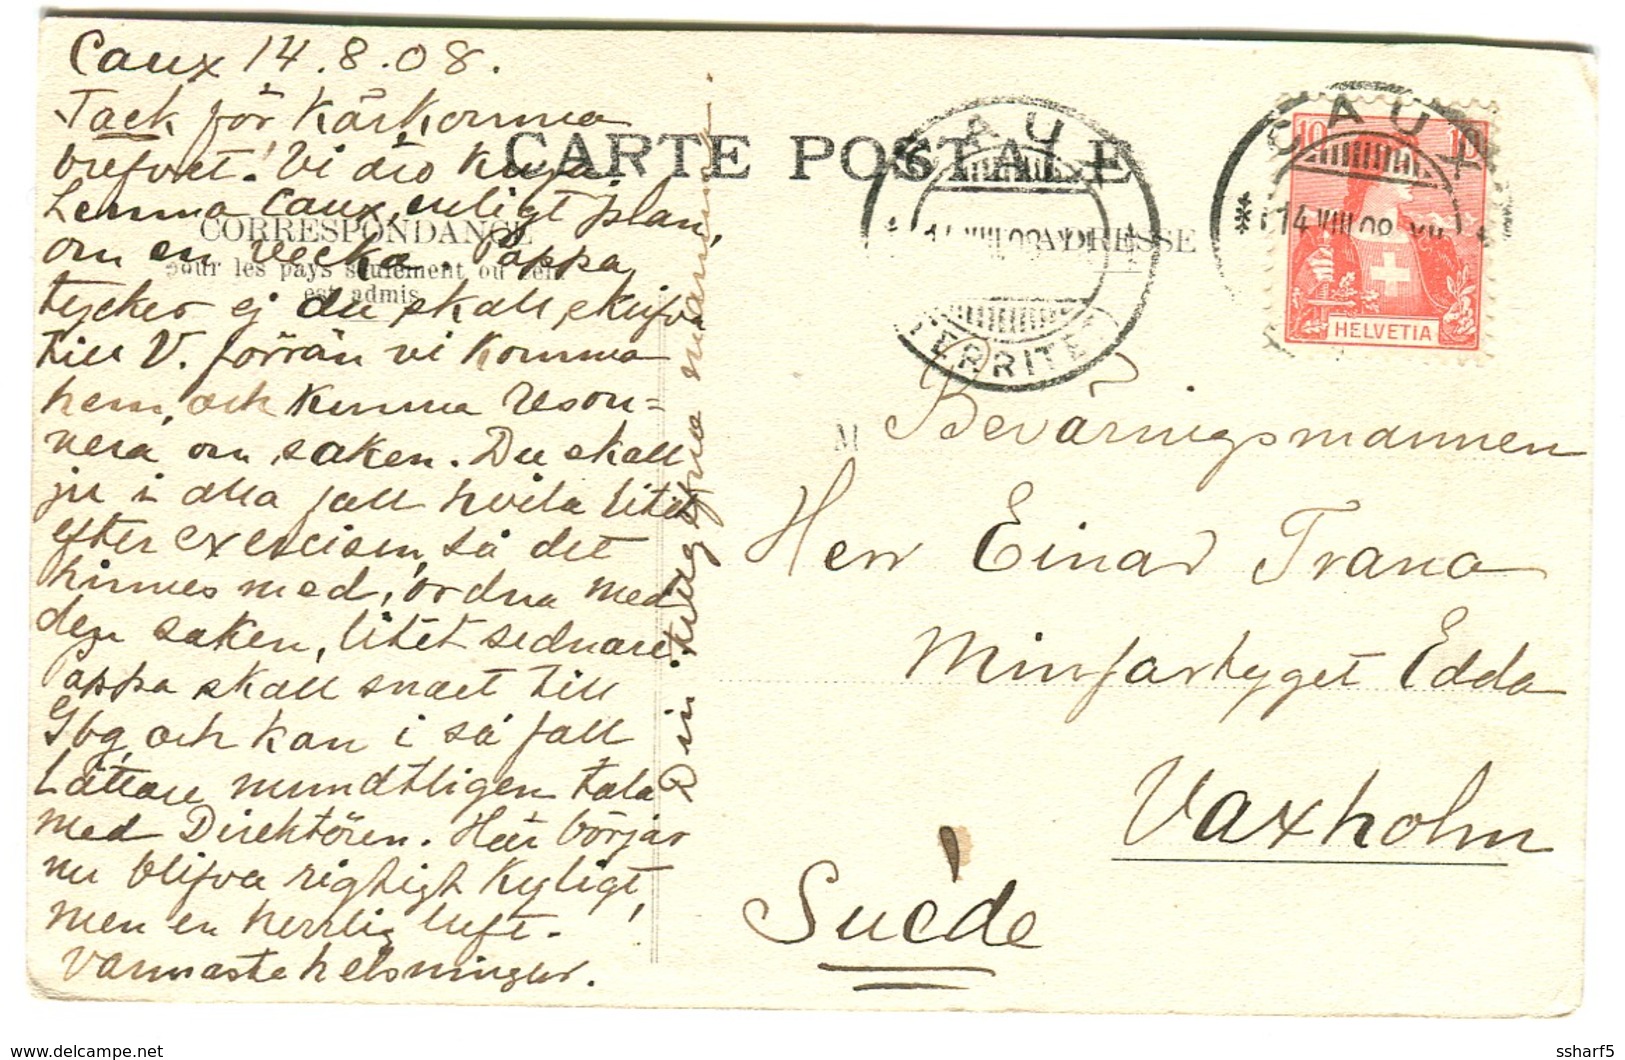 Caux 14.8.08.
Tack för kärkomna
brefvet! Vi dro
Lemna Caux, enligt plan,
om en vecka. Pappa
tycker ej du skall skrifva
till V. förrän vi komma
hem, och kunna reson=
nera om saken. Du skall
ju i alla fall hvila litet
efter exercisen, så det
hinnes med, ordna med
den saken, litet sednare.
Pappa skall snart till
Gbg, och kan i så fall
Lättare mundtligen tala
med Direktören. Här börjar
nu blifva rigtigt kyligt,
men en herrlig luft.
Varmaste helsningar.
Din mamma
CARTE POSTALE
CORRESPONDANCE
pour les pays seulement où cela
est admis
ADRESSE
CAUX
14 VIII 08
(TERRITET)
CAUX
14 VIII 08 XII
10 10
HELVETIA
M
Beväringsmannen
Herr Einar Trana
Minfartyget Edda
Vaxholm
Suède
ssharf5
© www.delcampe.net